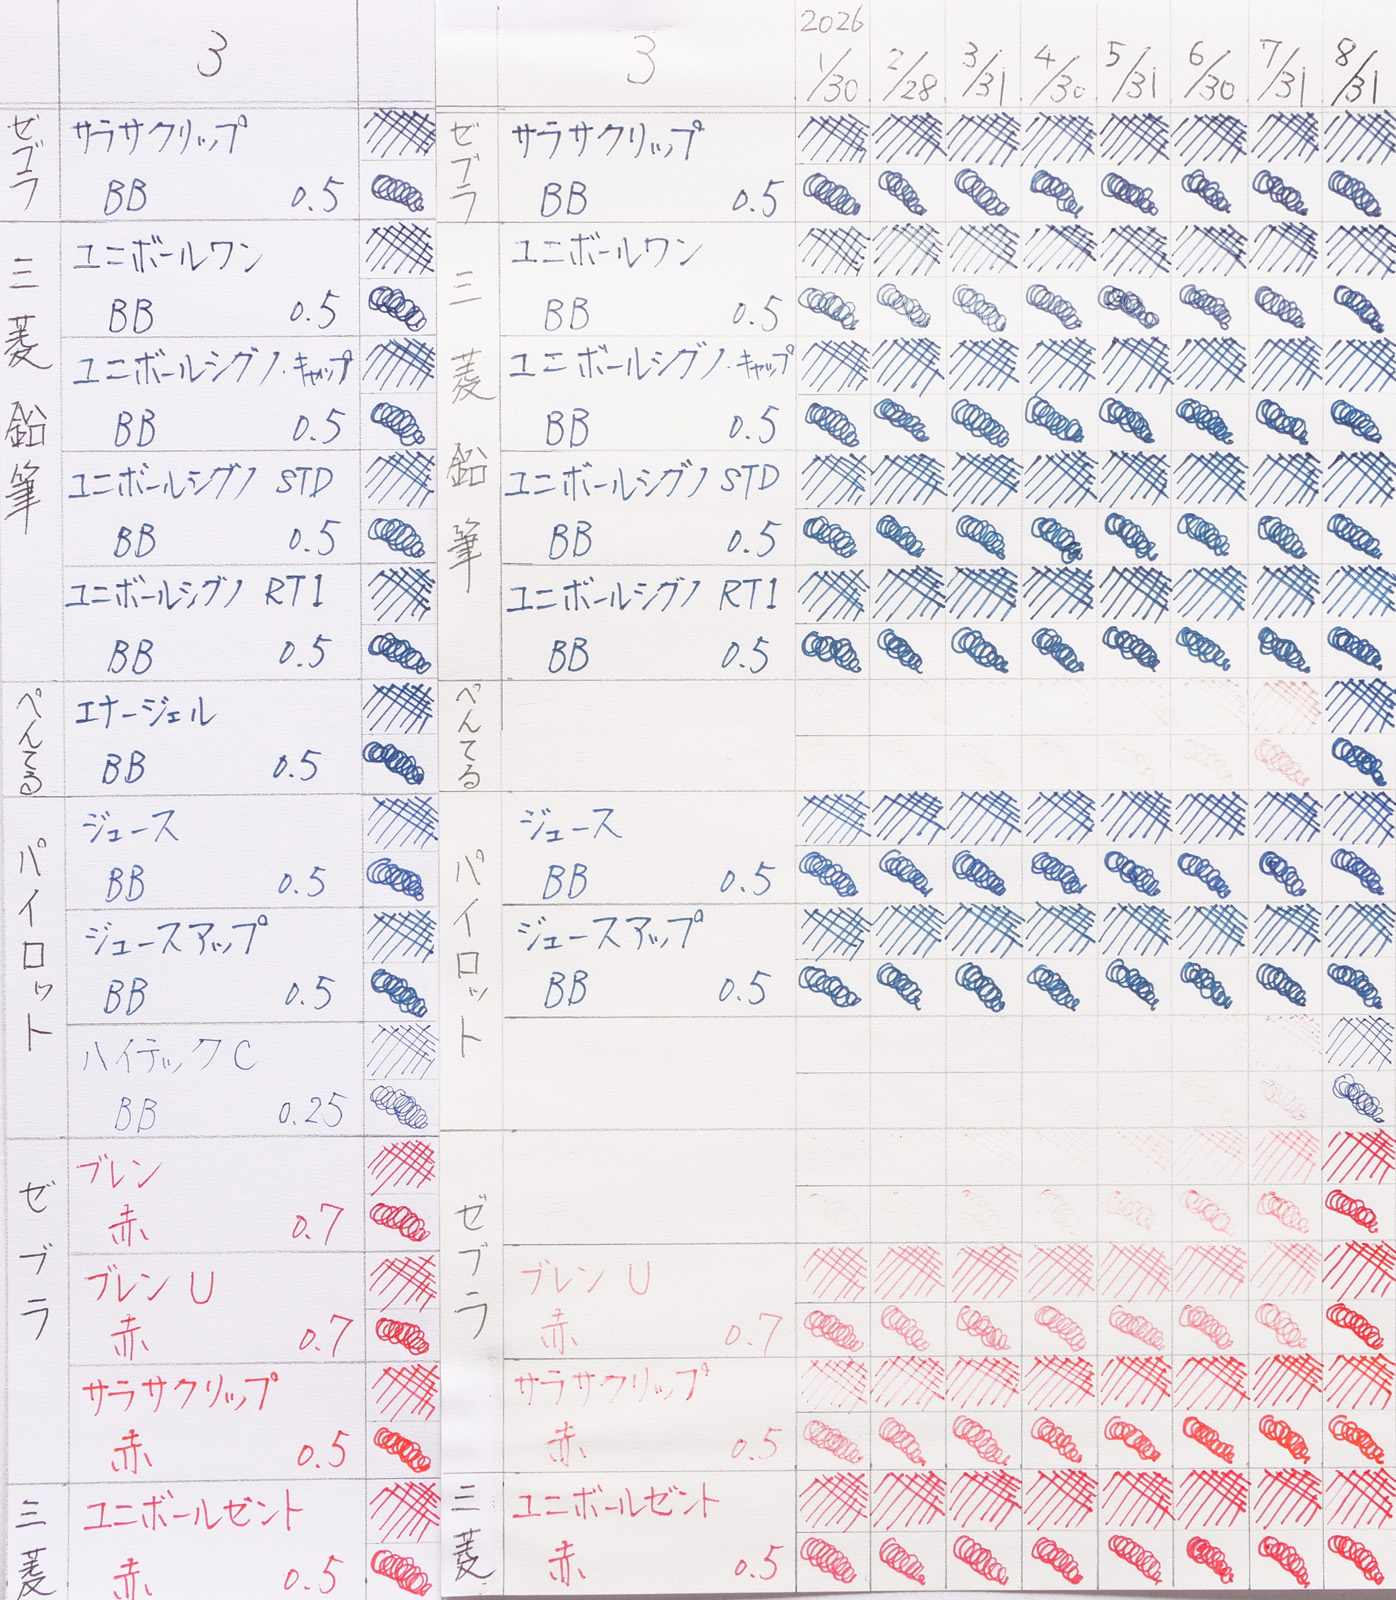 3
ゼブラ
サラサクリップ
BB 0.5
三菱鉛筆
ユニボールワン
BB 0.5
ユニボールシグノ・キャップ
BB 0.5
ユニボールシグノ STD
BB 0.5
ユニボールシグノ RT1
BB 0.5
ぺんてる
エナージェル
BB 0.5
パイロット
ジュース
BB 0.5
ジュースアップ
BB 0.5
ハイテックC
BB 0.25
ゼブラ
ブレン
赤 0.7
ブレンU
赤 0.7
サラサクリップ
赤 0.5
三菱
ユニボールゼント
赤 0.5
3
2026
1/30 2/28 3/31 4/30 5/31 6/30 7/31 8/31
ゼブラ
サラサクリップ
BB 0.5
三菱鉛筆
ユニボールワン
BB 0.5
ユニボールシグノ・キャップ
BB 0.5
ユニボールシグノ STD
BB 0.5
ユニボールシグノ RT1
BB 0.5
ぺんてる
パイロット
ジュース
BB 0.5
ジュースアップ
BB 0.5
ゼブラ
ブレンU
赤 0.7
サラサクリップ
赤 0.5
三菱
ユニボールゼント
赤 0.5